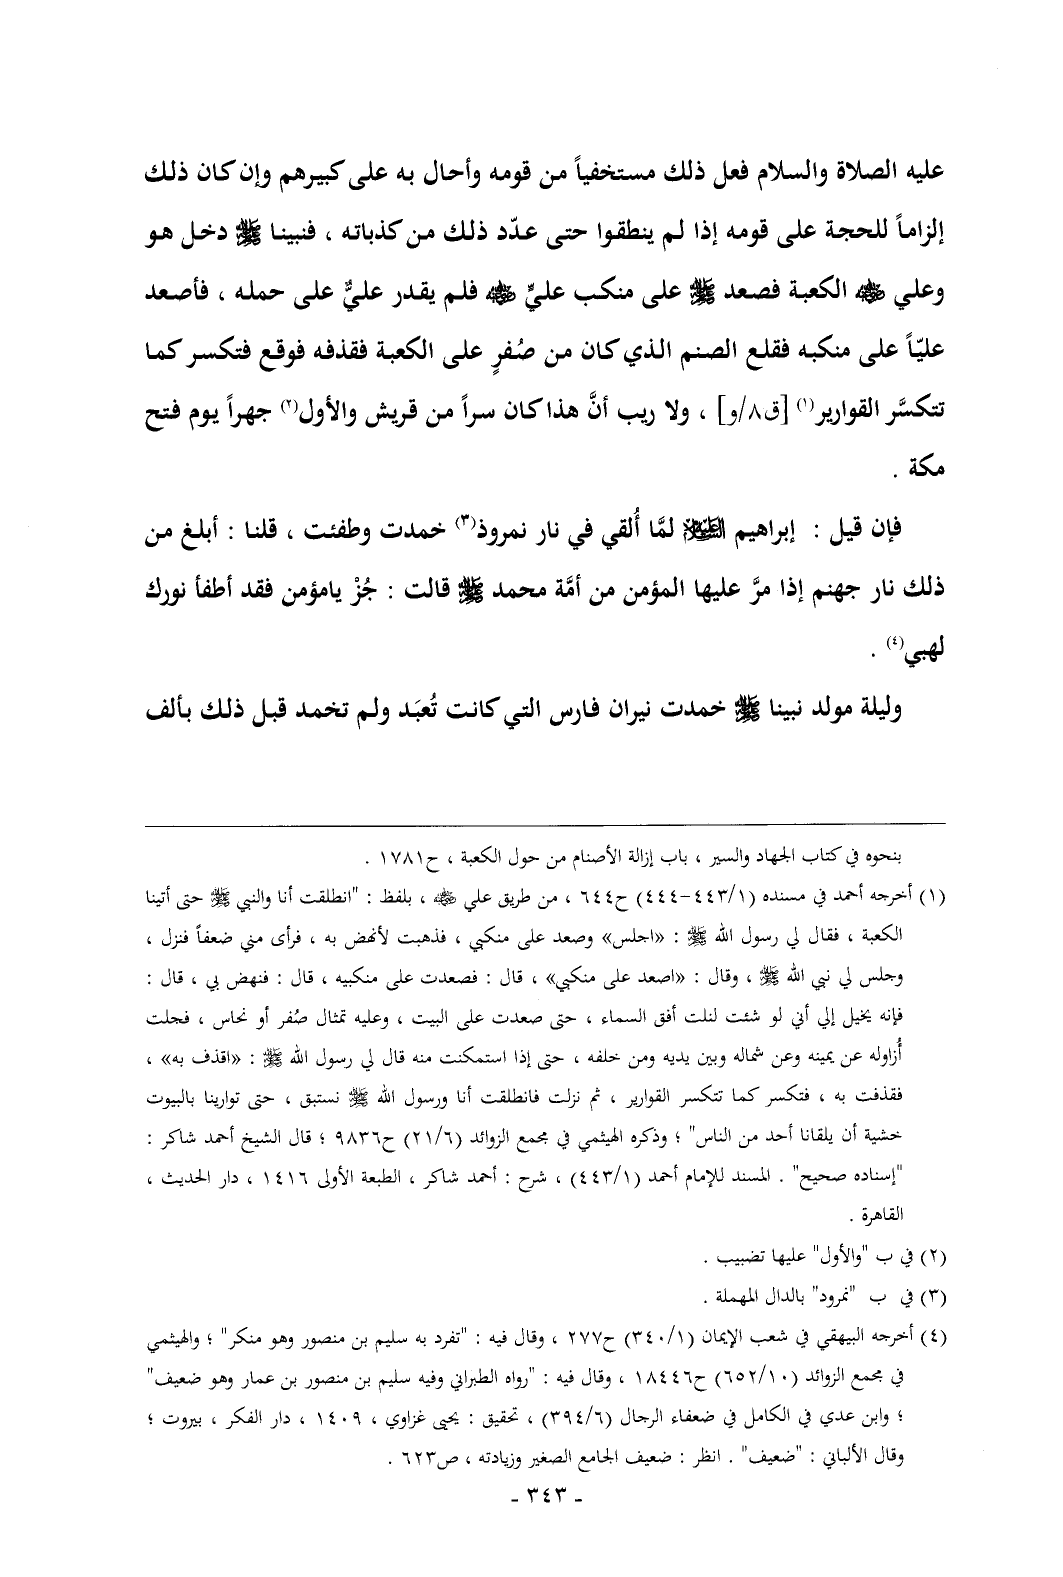 عليه الصلاة والسلام فعل ذلك مستخفياً من قومه وأحال به على كبيرهم وإن كان ذلك
إلزاماً للحجة على قومه إذا لم ينطقوا حتى عدّد ذلك من كذباته ، فنبينا ﷺ دخل هو
وعلي ؓ الكعبة فصعد ﷺ على منكب عليٍّ ؓ فلم يقدر عليٌّ على حمله ، فأصعد
عليّاً على منكبه فقلع الصنم الذي كان من صُفرٍ على الكعبة فقذفه فوقع فتكسر كما
تتكسَّر القوارير(١) [ق٨/و] ، ولا ريب أنَّ هذا كان سراً من قريش والأول(٢) جهراً يوم فتح
مكة .
فإن قيل : إبراهيم العليه السلام لمَّا أُلقي في نار نمروذ(٣) خمدت وطفئت ، قلنا : أبلغ من
ذلك نار جهنم إذا مرَّ عليها المؤمن من أمَّة محمد ﷺ قالت : جُزْ يامؤمن فقد أطفأ نورك
لهبي(٤) .
وليلة مولد نبينا ﷺ خمدت نيران فارس التي كانت تُعبَد ولم تخمد قبل ذلك بألف
بنحوه في كتاب الجهاد والسير ، باب إزالة الأصنام من حول الكعبة ، ح١٧٨١ .
(١) أخرجه أحمد في مسنده (٤٤٣/١-٤٤٤) ح٦٤٤ ، من طريق علي ؓ ، بلفظ : "انطلقت أنا والنبي ﷺ حتى أتينا
الكعبة ، فقال لي رسول الله ﷺ : «اجلس» وصعد على منكبي ، فذهبت لأنهض به ، فرأى مني ضعفاً فنزل ،
وجلس لي نبي الله ﷺ ، وقال : «اصعد على منكبي» ، قال : فصعدت على منكبيه ، قال : فنهض بي ، قال :
فإنه يخيل إلي أني لو شئت لنلت أفق السماء ، حتى صعدت على البيت ، وعليه تمثال صُفر أو نحاس ، فجلت
أُزاوله عن يمينه وعن شماله وبين يديه ومن خلفه ، حتى إذا استمكنت منه قال لي رسول الله ﷺ : «اقذف به» ،
فقذفت به ، فتكسر كما تتكسر القوارير ، ثم نزلت فانطلقت أنا ورسول الله ﷺ نستبق ، حتى توارينا بالبيوت
خشية أن يلقانا أحد من الناس" ؛ وذكره الهيثمي في مجمع الزوائد (٢١/٦) ح٩٨٣٦ ؛ قال الشيخ أحمد شاكر :
"إسناده صحيح" . المسند للإمام أحمد (٤٤٣/١) ، شرح : أحمد شاكر ، الطبعة الأولى ١٤١٦ ، دار الحديث ،
القاهرة .
(٢) في ب "والأول" عليها تضبيب .
(٣) في ب "نمرود" بالدال المهملة .
(٤) أخرجه البيهقي في شعب الإيمان (٣٤٠/١) ح٢٧٧ ، وقال فيه : "تفرد به سليم بن منصور وهو منكر" ؛ والهيثمي
في مجمع الزوائد (٦٥٢/١٠) ح١٨٤٤٦ ، وقال فيه : "رواه الطبراني وفيه سليم بن منصور بن عمار وهو ضعيف"
؛ وابن عدي في الكامل في ضعفاء الرجال (٣٩٤/٦) ، تحقيق : يحيى غزاوي ، ١٤٠٩ ، دار الفكر ، بيروت ؛
وقال الألباني : "ضعيف" . انظر : ضعيف الجامع الصغير وزيادته ، ص٦٢٣ .
- ٣٤٣ -